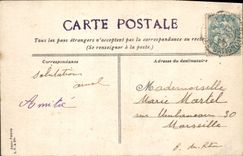 CARTE POSTALE
Tous les pays étrangers n'acceptent pas la correspondance au recto
(Se renseigner à la poste)
Correspondance
Adresse du destinataire
Salutations
Amitié
Mademoiselle
Marie Martel
rue 30
Marseille
B. du Rhône